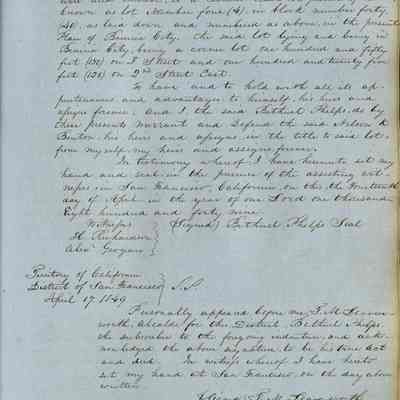 known as lot Number four (4), in block number forty,
(40), as laid down and numbered as above, in the present
Plan of Benicia City, the said lot lying and being in
Benicia City, being a corner lot one hundred and fifty
feet (150) on I Street and one hundred and twenty five
feet (125) on 2nd Street East.
To have and to hold with all its ap-
purtenances and advantages to himself, his heirs and
assigns forever. And I the said Bethuel Phelps, do by
these presents Warrant and Defend the said Nelson K
Benton, his heirs and assigns, in the title to said lot,
from myself my heirs and assigns forever.
In testimony whereof I have hereunto set my
hand and seal in the presence of the assisting wit-
nesses, in San Francisco, California, on this the
day of April in the year of our Lord one thousand
Eight hundred and forty nine
Witness (Signed) Bethuel Phelps Seal
H. Richardson
Alex Grogan
Territory of California
District of San Francisco } S.S.
April 17 1849
Personally appeared before me, T. M. Leaven-
worth, Alcalde for the District, Bethuel Phelps,
the subscriber to the foregoing indenture, and ack-
nowledged the above signature to be his true act
and deed. In witness whereof I have hereto
set my hand at San Francisco, on the day above
written
Signed T. M. Leavenworth